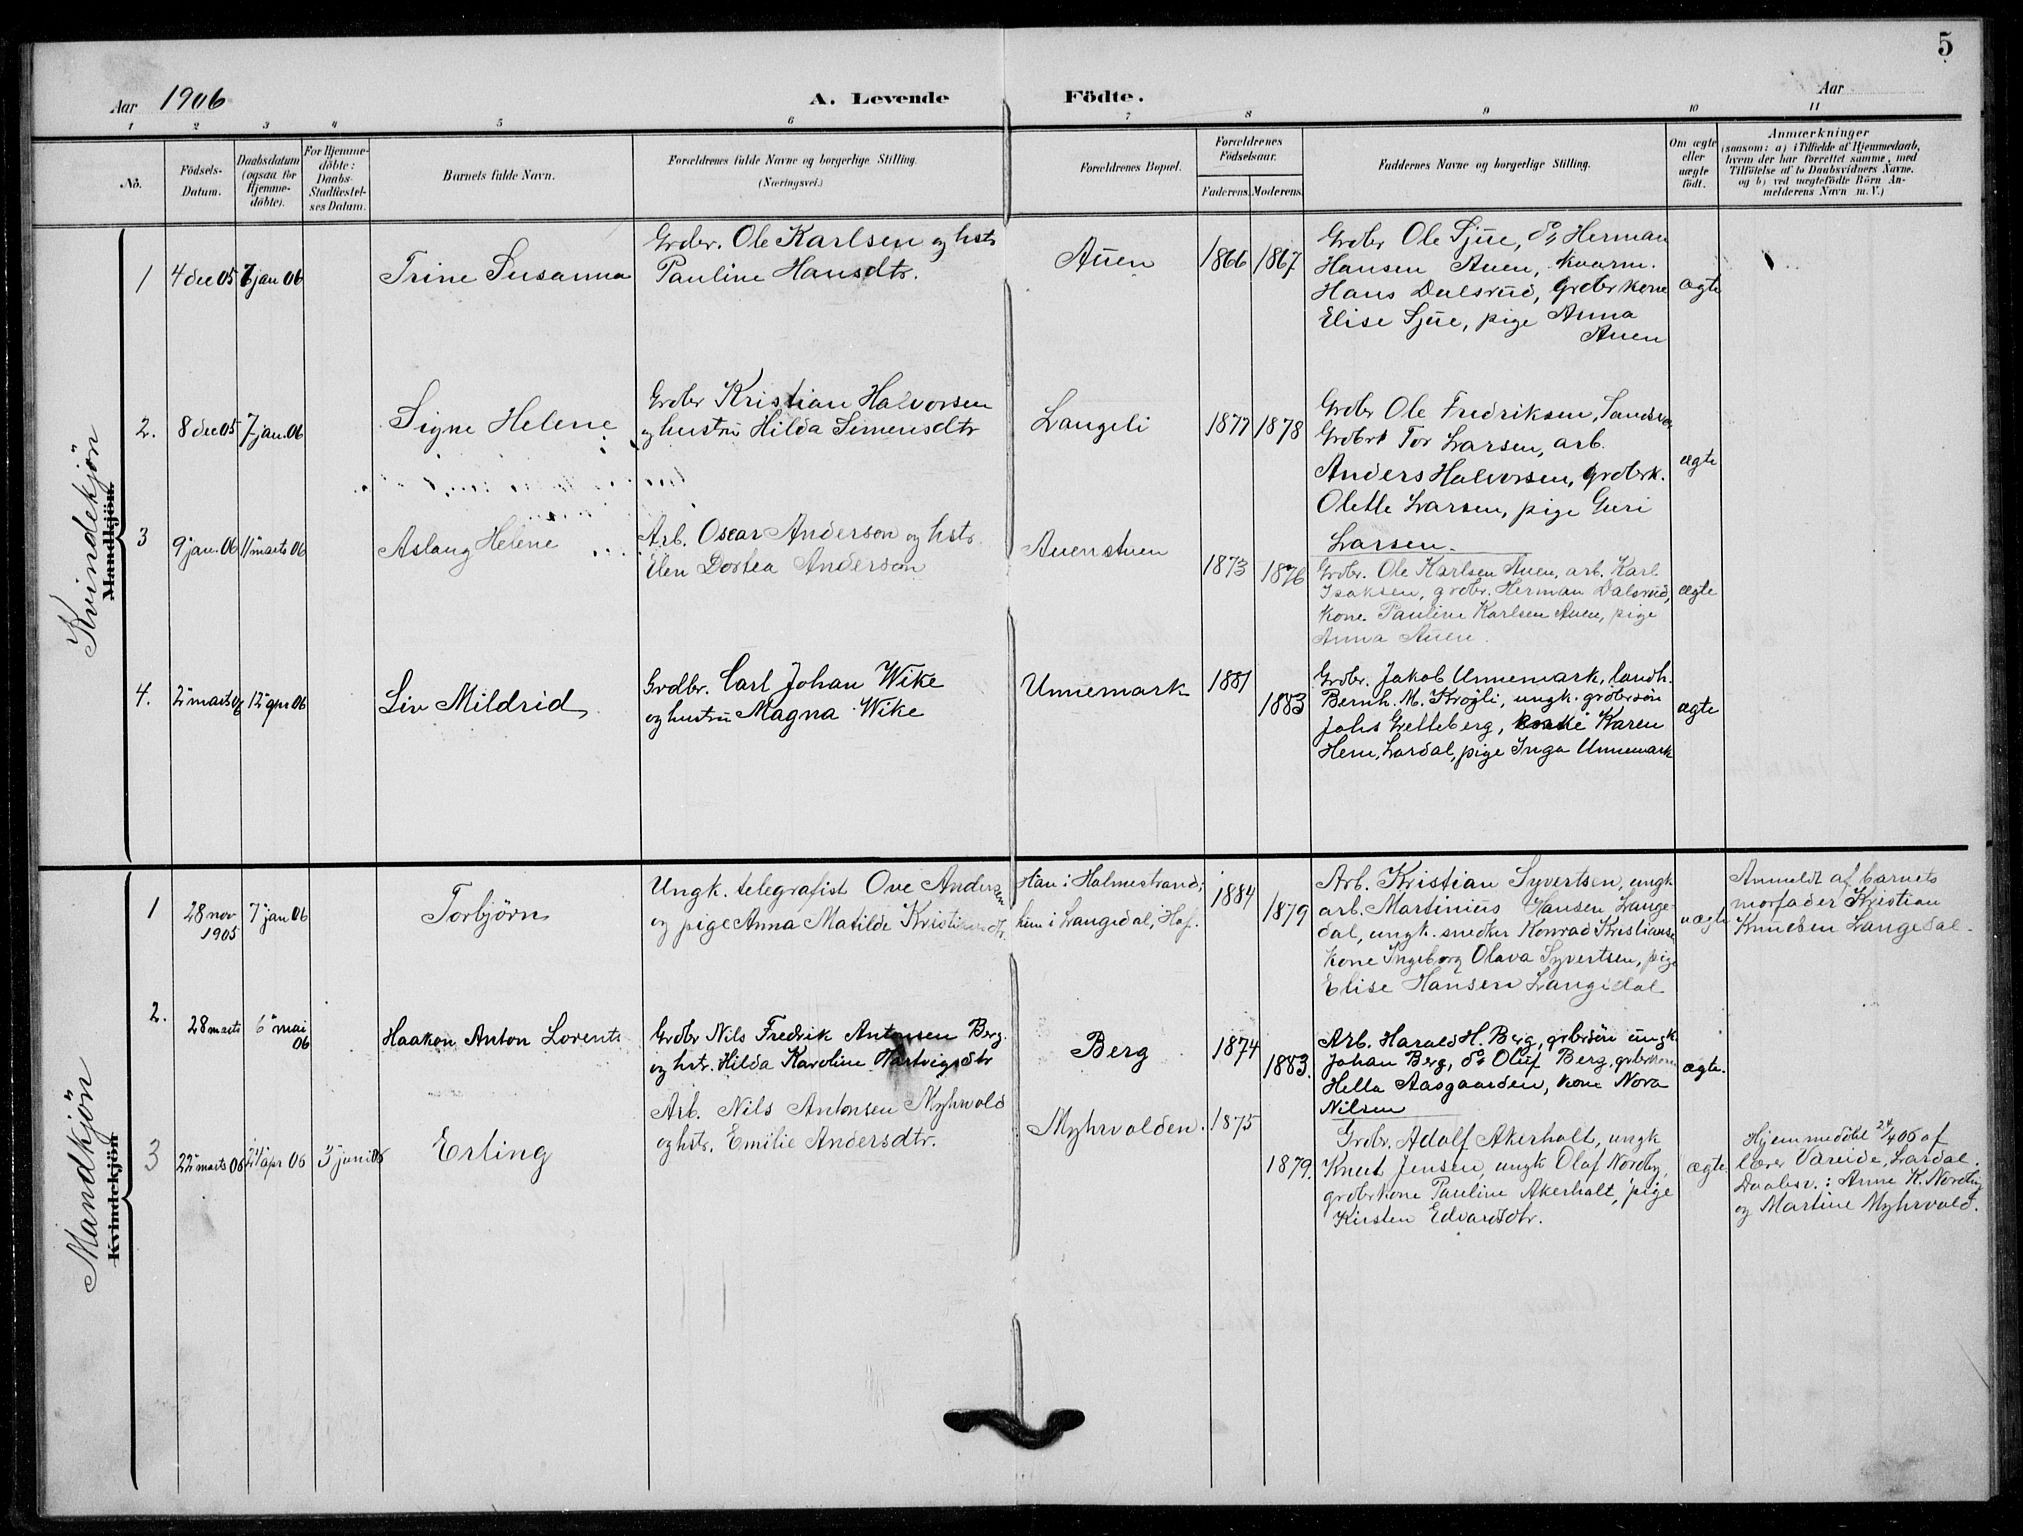 5
Aar 1906
A. Levende Födte.
Aar
1 2 3 4 5 6 7 8 9 10 11
No.
Födsels-
Datum.
Daabsdatum
(ogsaa for
Hjemme-
döbte).
For Hjemme-
döbte:
Daabs-
Stadfæstel-
ses Datum.
Barnets fulde Navn.
Forældrenes fulde Navne og borgerlige Stilling.
(Næringsvei.)
Forældrenes Bopæl.
Forældrenes
Födselsaar.
Faderens. Moderens.
Faddernes Navne og borgerlige Stilling.
Om ægte
eller
uægte
födt.
Anmærkninger
(saasom: a) i Tilfælde af Hjemmedaab,
hvem der har forrettet samme, med
Tilföielse af to Daabsvidners Navne.
og b) ved uægtefödte Börn An-
melderens Navn m. V.)
Kvindekjön
Mandkjön.
1
4 dec 05
7 jan 06
Trine Susanna
Grdbr. Ole Karlsen og hstr
Pauline Hansdtr.
Auen
1866
1867
Grdbr Ole Sjue, do Herman
Hansen Auen, kvarm.
Hans Dalsrud, grdbrkone
Elise Sjue, pige Anna
Auen
ægte
2.
8 dec 05
7 jan 06
Signe Helene
Grdbr Kristian Halvorsen
og hustru Hilda Simensdtr
Langeli
1877
1878
Grdbr Ole Fredriksen,
Grdbr Tor Larsen, arb.
Anders Halvorsen, grdbrk.
Olette Larsen, pige Guri
Larsen.
ægte
3
9 jan. 06
11 marts 06
Aslaug Helene
Arb. Oscar Anderson og hstr.
Elen Dortea Anderson
Auenstuen
1873
1876
Grdbr. Ole Karlsen Auen, arb. Karl
Isaksen, grdbr. Herman Dalsrud,
kone Pauline Karlsen Auen, pige
Anna Auen.
ægte
4.
2 marts 06
12 apr 06
Liv Mildrid
Grdbr. Carl Johan Wike
og hustru Magna Wike
Unnemark
1881
1883
Grdbr. Jakob Unnemark, landh.
Bernh. M. Krøgli, ungk. grdbrsön
Johs Gretteberg, Karen
Hem, Lardal, pige Inga Unnemark
ægte
Mandkjön
Kvindekjön
1
28 nov
1905
7 jan 06
Torbjörn
Ungk. telegrafist Ove Andersen
og pige Anna Matilde Kristiansdtr.
Han i Holmestrand;
hun i Langedal, Hof.
1884
1879
Arb. Kristian Syvertsen, ungk
arb. Martinius Hansen Lange-
dal, ungk. snedker Konrad Kristianse
kone Ingeborg Olava Syvertsen, pige
Elise Hansen Langedal
uægte
Anmeldt af barnets
morfader Kristian
Knudsen Langedal.
2.
28 marts
6 mai
06
Haakon Anton Lorents
Grdbr Nils Fredrik Antonsen Berg
og hstr. Hilda Karoline Hartvigsdtr
Berg
1874
1883.
Arb. Harald H. Berg, grdbrsön ungk.
Johan Berg, do Oluf Berg, grdbrkone
Hella Aasgaarden, kone Nora
Nilsen
ægte.
3
22 marts 06
24 apr 06
3 juni 06
Erling
Arb. Nils Antonsen Myhrvold
og hstr. Emilie Andersdtr.
Myhrvolden.
1875
1879.
Grdbr. Adolf Akerholt, ungk
Knut Jensen, ungk Olaf Nordby,
grdbrkone Pauline Akerholt, pige
Kirsten Edvardsdtr.
ægte
Hjemmedöbt 24/4 06 af
lærer Vareide, Lardal.
Daabsv.: Anne K. Nordby
og Martine Myhrvold.